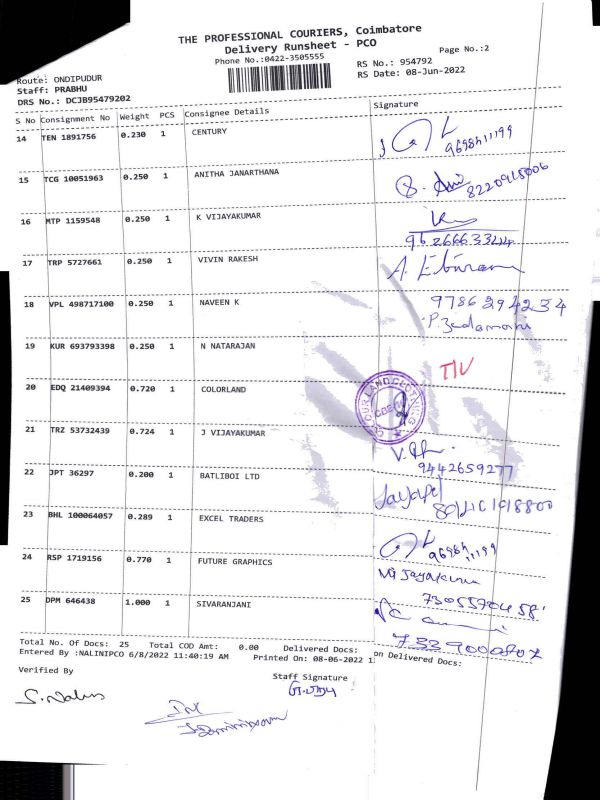 THE PROFESSIONAL COURIERS, Coimbatore
Delivery Runsheet - PCO
Phone No.:0422-3505555
Page No.:2
Route: ONDIPUDUR
Staff: PRABHU
DRS No.: DCJB95479202
RS No.: 954792
RS Date: 08-Jun-2022
S No Consignment No Weight PCS Consignee Details Signature
14 TEN 1891756 0.230 1 CENTURY
9698411199
15 TCG 10051963 0.250 1 ANITHA JANARTHANA
8220918006
16 MTP 1159548 0.250 1 K VIJAYAKUMAR
9626663344
17 TRP 5727661 0.250 1 VIVIN RAKESH
18 VPL 498717100 0.250 1 NAVEEN K
9786294234
19 KUR 693793398 0.250 1 N NATARAJAN
20 EDQ 21409394 0.720 1 COLORLAND
COLOUR LAND CLOTHING
21 TRZ 53732439 0.724 1 J VIJAYKUMAR
9442659277
22 JPT 36297 0.200 1 BATLIBOI LTD
23 BHL 100064057 0.289 1 EXCEL TRADERS
9698411199
24 RSP 1719156 0.770 1 FUTURE GRAPHICS
25 DPM 646438 1.000 1 SIVARANJANI
Total No. Of Docs: 25 Total COD Amt: 0.00 Delivered Docs:
Entered By :NALINIPCO 6/8/2022 11:40:19 AM Printed On: 08-06-2022 1
on Delivered Docs:
Verified By
Staff Signature